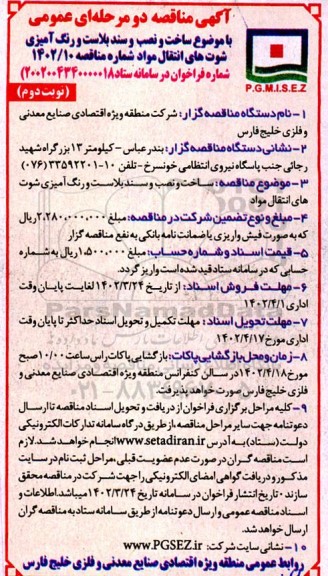 آگهی مناقصه دو مرحله‌ای عمومی
با موضوع ساخت و نصب و سند بلاست و رنگ آمیزی
شوت های انتقال مواد شماره مناقصه ۱۴۰۲/۱۰
شماره فراخوان در سامانه ستاد ۲۰۰۲۰۰۴۳۴۰۰۰۰۰۱۸)
(نوبت دوم)
P.G.M.I.S.E.Z
۱- نام دستگاه مناقصه گزار: شرکت منطقه ویژه اقتصادی صنایع معدنی
و فلزی خلیج فارس
۲- نشانی دستگاه مناقصه گزار: بندرعباس - کیلومتر ۱۳ بزرگراه شهید
رجائی جنب پاسگاه نیروی انتظامی خونسرخ - تلفن ۱۰-۳۳۵۹۲۲۰۱ (۰۷۶)
۳- موضوع مناقصه: ساخت و نصب و سند بلاست و رنگ آمیزی شوت
های انتقال مواد
۴- مبلغ و نوع تضمین شرکت در مناقصه: مبلغ ۲,۲۸۰,۰۰۰,۰۰۰ ریال
که به صورت فیش واریزی یا ضمانت نامه بانکی به نفع مناقصه گزار
۵- قیمت اسناد و شماره حساب: مبلغ ۱,۵۰۰,۰۰۰ ریال به شماره
حسابی که در سامانه ستاد قید شده است واریز گردد.
۶- مهلت فروش اسناد: از تاریخ ۱۴۰۲/۳/۲۴ لغایت پایان وقت
اداری ۱۴۰۲/۴/۱
۷- مهلت تحویل اسناد: مهلت تکمیل و تحویل اسناد حداکثر تا پایان وقت
اداری مورخ ۱۴۰۲/۴/۱۷
۸- زمان و محل بازگشایی پاکات: بازگشایی پاکات راس ساعت ۱۰/۰۰ صبح
مورخ ۱۴۰۲/۴/۱۸ در سالن کنفرانس منطقه ویژه اقتصادی صنایع معدنی و
فلزی خلیج فارس صورت خواهد پذیرفت.
۹- کلیه مراحل برگزاری فراخوان از دریافت و تحویل اسناد مناقصه تا ارسال
دعوتنامه جهت سایر مراحل مناقصه، از طریق درگاه سامانه تدارکات الکترونیکی
دولت (ستاد) به آدرس www.setadiran.ir انجام خواهد شد. لازم
است مناقصه گران در صورت عدم عضویت قبلی، مراحل ثبت نام در سایت
مذکور و دریافت گواهی امضای الکترونیکی را جهت شرکت در مناقصه محقق
سازند. تاریخ انتشار فراخوان در سامانه تاریخ ۱۴۰۲/۳/۲۴ میباشد. اطلاعات و
اسناد مناقصه عمومی و ارسال دعوتنامه از طریق سامانه ستاد به مناقصه گران
ارسال خواهد شد.
۱۰- نشانی سایت شرکت: www.PGSEZ.ir
روابط عمومی منطقه ویژه اقتصادی صنایع معدنی و فلزی خلیج فارس